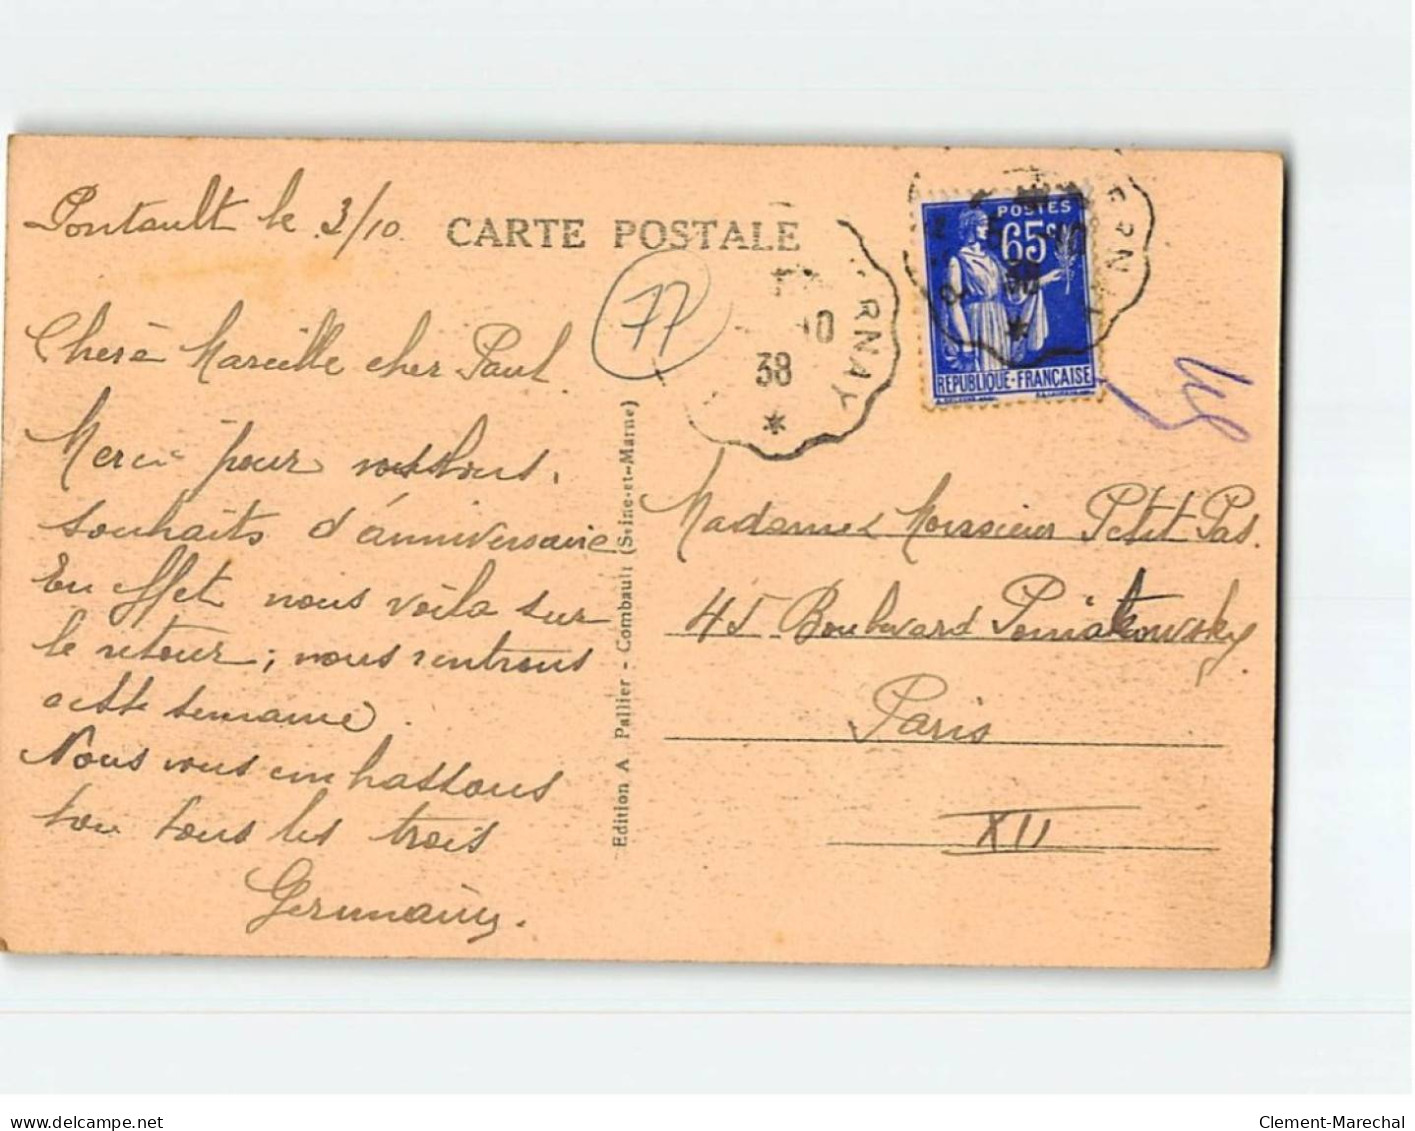 Pontault le 3/10.
CARTE POSTALE
77
10
38
RNAY
ERNAY
POSTES
65c
REPUBLIQUE-FRANÇAISE
Chère Marcelle cher Paul
Merci pour vos bons
souhaits d'anniversaire
En effet nous voila sur
le retour; nous rentrons
cette semaine.
Nous vous embrassons
tous les trois
Germaine.
Edition A Pallier - Combault (Seine-et-Marne)
Madame & Monsieur Petit Pas.
45 Boulevard Poniatowsky
Paris
XII
delcampe.net
Clement-Marechal